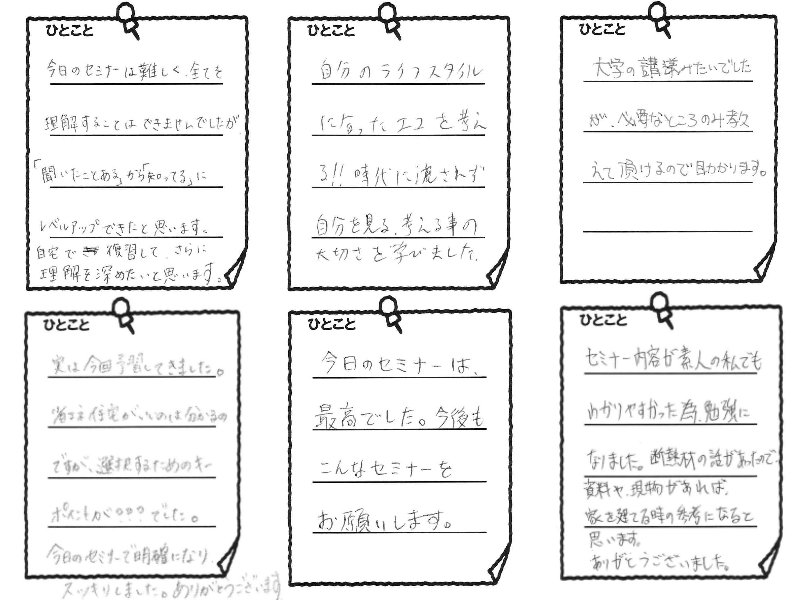 ひとこと
今日のセミナーは難しく、全てを
理解することはできませんでしたが
「聞いたことある」から「知ってる」に
レベルアップできたと思います。
自宅で復習して、さらに
理解を深めたいと思います。
ひとこと
自分のライフスタイル
になったエコを考え
る!!時代に流されず
自分を見る、考える事の
大切さを学びました。
ひとこと
大学の講義みたいでした
が、必要なところのみ教
えて頂けるので助かります。
ひとこと
実は今回予習してきました。
省エネ住宅がいいのは分かるの
ですが、選択するためのキー
ポイントが???でした。
今日のセミナーで明確になり
スッキリしました。ありがとうございます
ひとこと
今日のセミナーは、
最高でした。今後も
こんなセミナーを
お願いします。
ひとこと
セミナー内容が素人の私でも
わかりやすかった為、勉強に
なりました。断熱材の話があったので
資料や、現物があれば、
家を建てる時の参考になると
思います。
ありがとうございました。